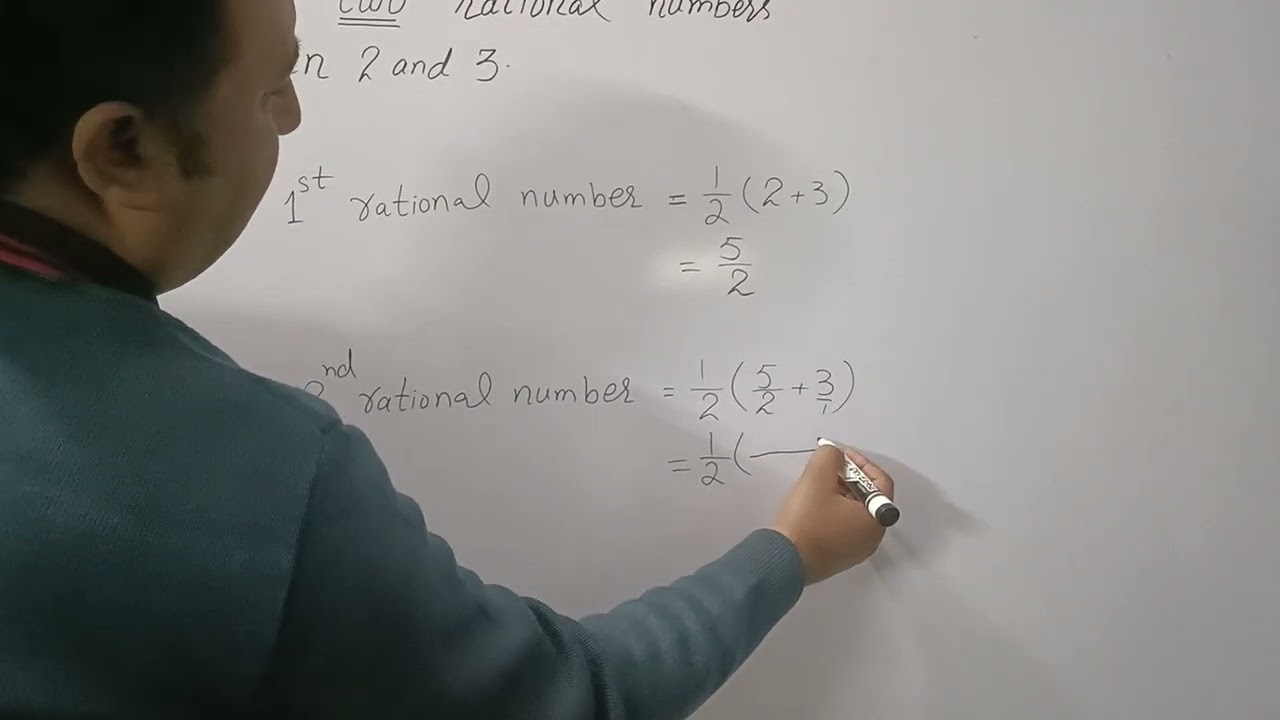 two rational numbers
n 2 and 3.
1st rational number = 1/2 (2 + 3)
= 5/2
nd rational number = 1/2 (5/2 + 3/1)
= 1/2 (